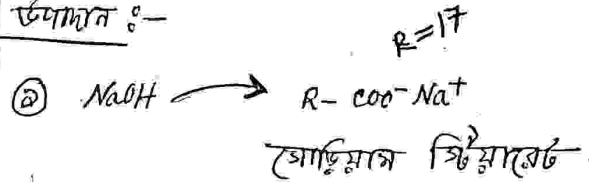 উপাদান :-
R=17
② NaOH → R- COO⁻Na⁺
সোডিয়াম স্টিয়ারেট